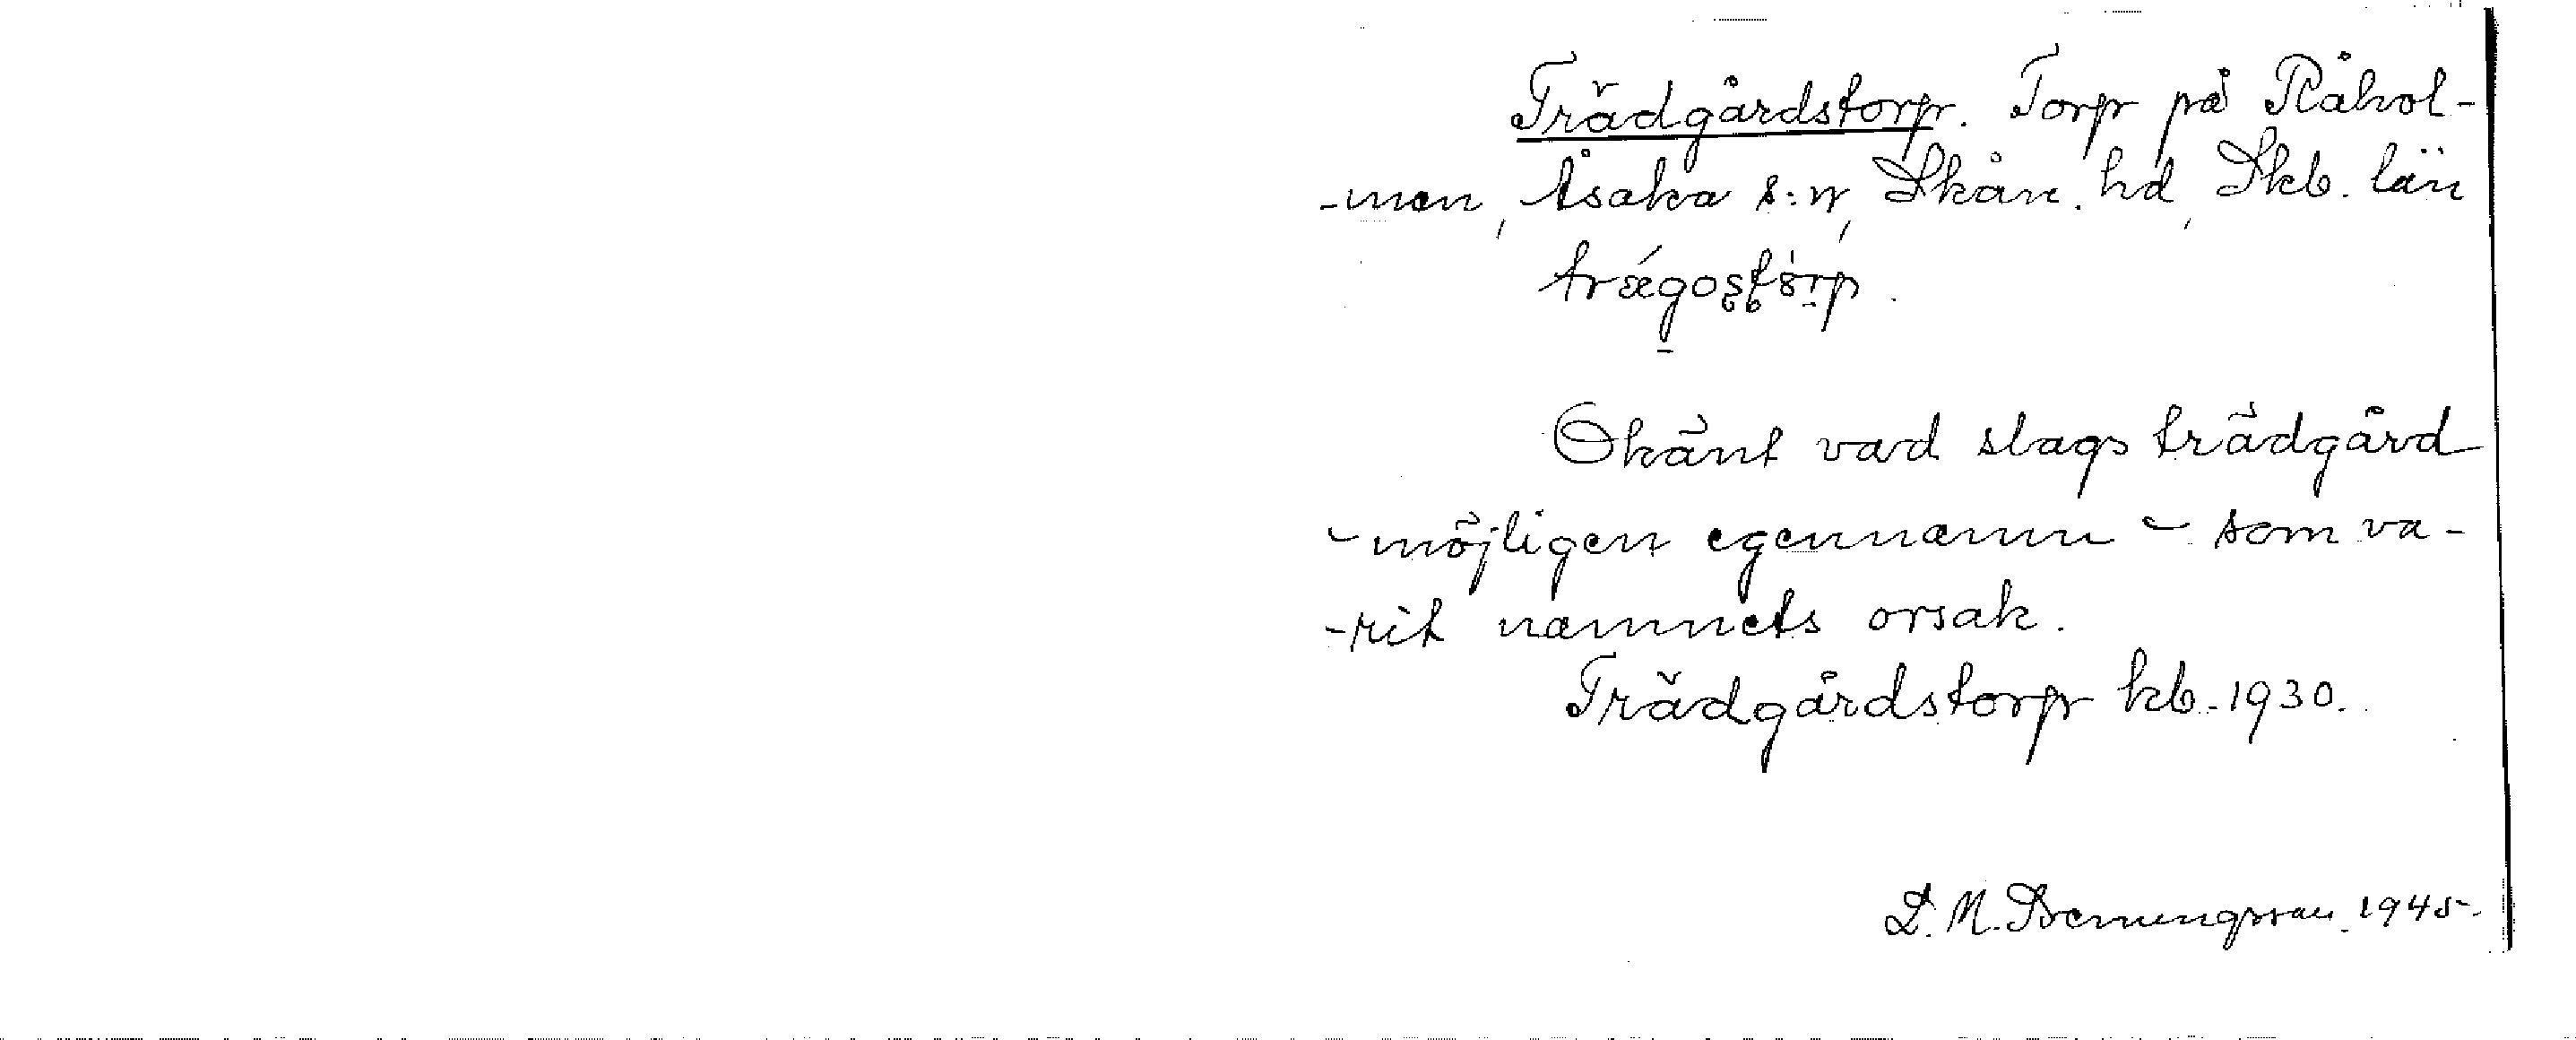 Trädgårdstorp. Torp på Råhol-
-men, Åsaka s:n, Skån. hd, Skb. län
Okänt vad slags trädgård
- möjligen egennamn - som va-
-rit namnets orsak.
Trädgårdstorp kb. 1930.
1945.